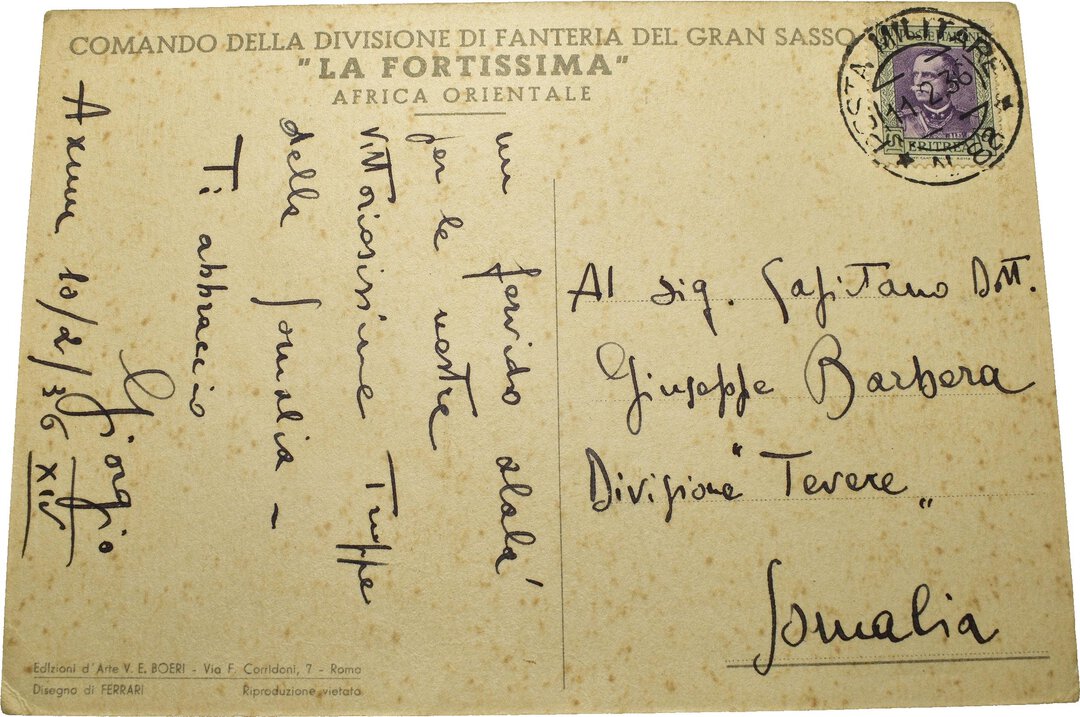 COMANDO DELLA DIVISIONE DI FANTERIA DEL GRAN SASSO
"LA FORTISSIMA"
AFRICA ORIENTALE
POSTA MILITARE
11.2.36
ERITREA
un fervido alalà
per le vostre
vittoriosissime Truppe
della Somalia -
Ti abbraccio
Giorgio
Axum 10/2/36 XIV
Al sig. Capitano Dott.
Giuseppe Barbera
Divisione "Tevere"
Somalia
Edizioni d'Arte V. E. BOERI - Via F. Corridoni, 7 - Roma
Disegno di FERRARI Riproduzione vietata